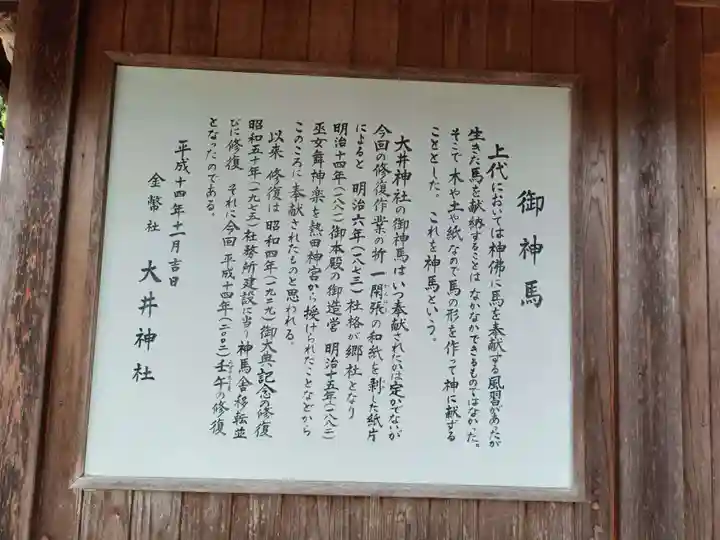 御神馬
上代においては神佛に馬を奉献する風習があったが
生きた馬を献納することはなかなかできるものではなかった。
そこで木や土や紙などで馬の形を作って神に献ずる
こととした。これを神馬という。
大井神社の御神馬はいつ奉献されたかは定かでないが
今回の修復作業の折一閑張の和紙を剥した紙片
によると明治六年(一八七三)社格が郷社となり
明治十四年(一八八一)御本殿の御造営明治十五年(一八八二)
巫女舞神楽を熱田神宮から授けられたことなどから
このころに奉献されたものと思われる。
以来修復は昭和四年(一九二九)御大典記念の修復
昭和五十年(一九七五)社務所建設に当り神馬舎移転並
びに修復それに今回平成十四年(二〇〇二)壬午の修復
となったのである。
平成十四年十一月吉日
金幣社大井神社